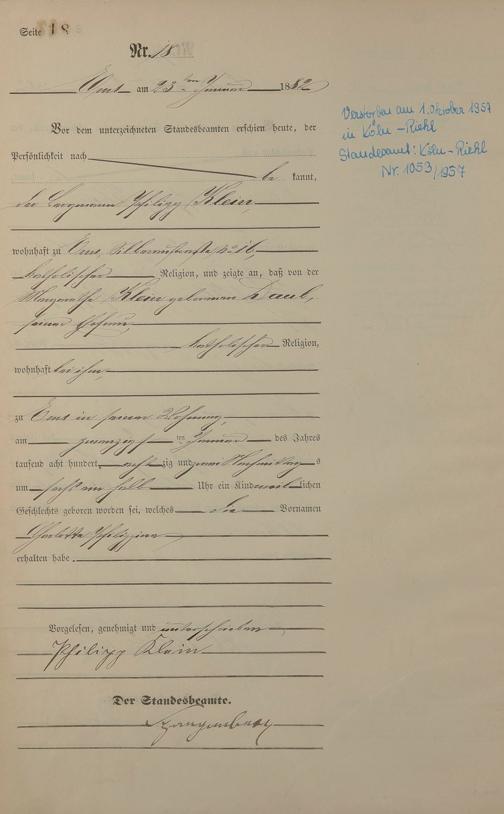 Seite 18
Nr. 18
Ems am 23ten Januar 1882
Vor dem unterzeichneten Standesbeamten erschien heute, der
Persönlichkeit nach
be kannt,
der Bergmann Philipp Klein,
wohnhaft zu Ems,
katholischer Religion, und zeigte an, daß von der
Margarethe Klein geborenen
seiner Ehefrau,
katholischer Religion,
wohnhaft bei ihm,
zu Ems in seiner Wohnung,
am zwanzigsten Januar des Jahres
tausend acht hundert acht zig und zwei Nachmittags
um sechs ein halb Uhr ein Kind weiblichen
Geschlechts geboren worden sei, welches die Vornamen
Charlotte Philippine
erhalten habe.
Vorgelesen, genehmigt und unterschrieben
Philipp Klein
Der Standesbeamte.
Verstorben am 1. Oktober 1957
in Köln-Riehl
Standesamt: Köln-Riehl
Nr. 1053/1957